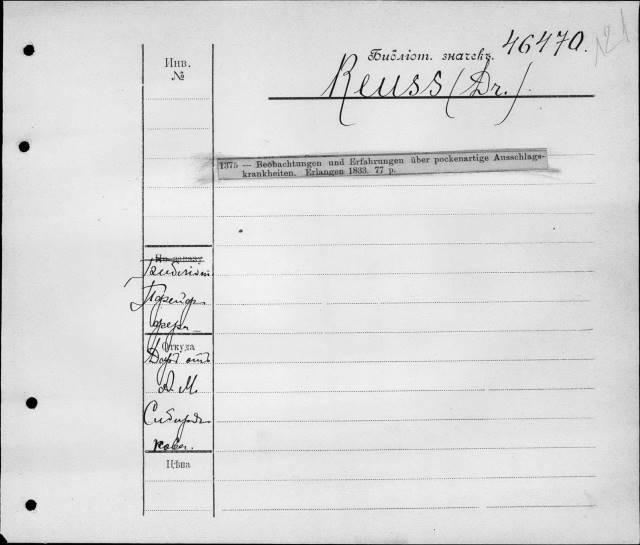 Инв.
№
Библіот. значекъ 46470.
Reuss (Dr.)
1375 — Beobachtungen und Erfahrungen über pockenartige Ausschlags-
krankheiten. Erlangen 1833. 77 p.
По заказу
Откуда
Даръ отъ
А. М.
Сибиря-
кова.
Цѣна